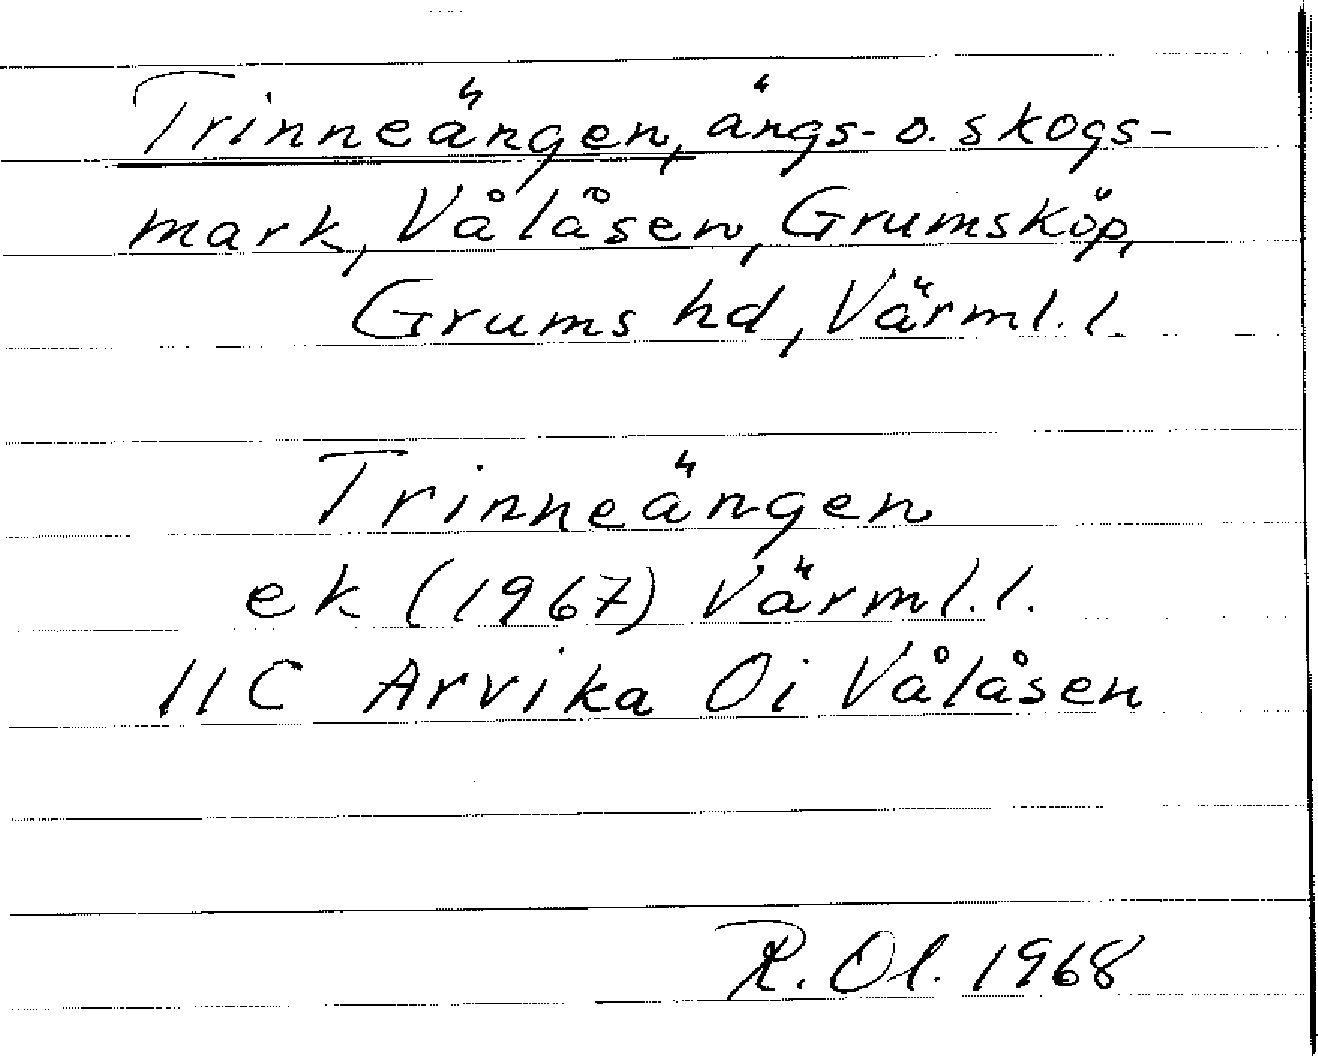 Trinneängen, ängs- o. skogs-
mark, Vålåsen, Grumsköp,
Grums hd, Värml. l.
Trinneängen
ek (1967) Värml. l.
11C Arvika Oi Vålåsen
R. Ol. 1968